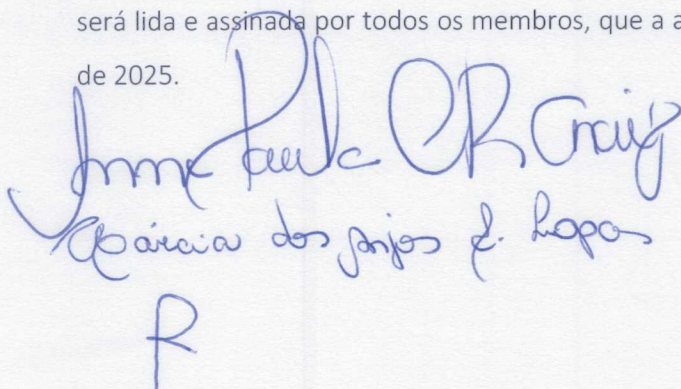 será lida e assinada por todos os membros, que a a
de 2025.
Paula CR
Márcia dos Anjos L. Lopes
R